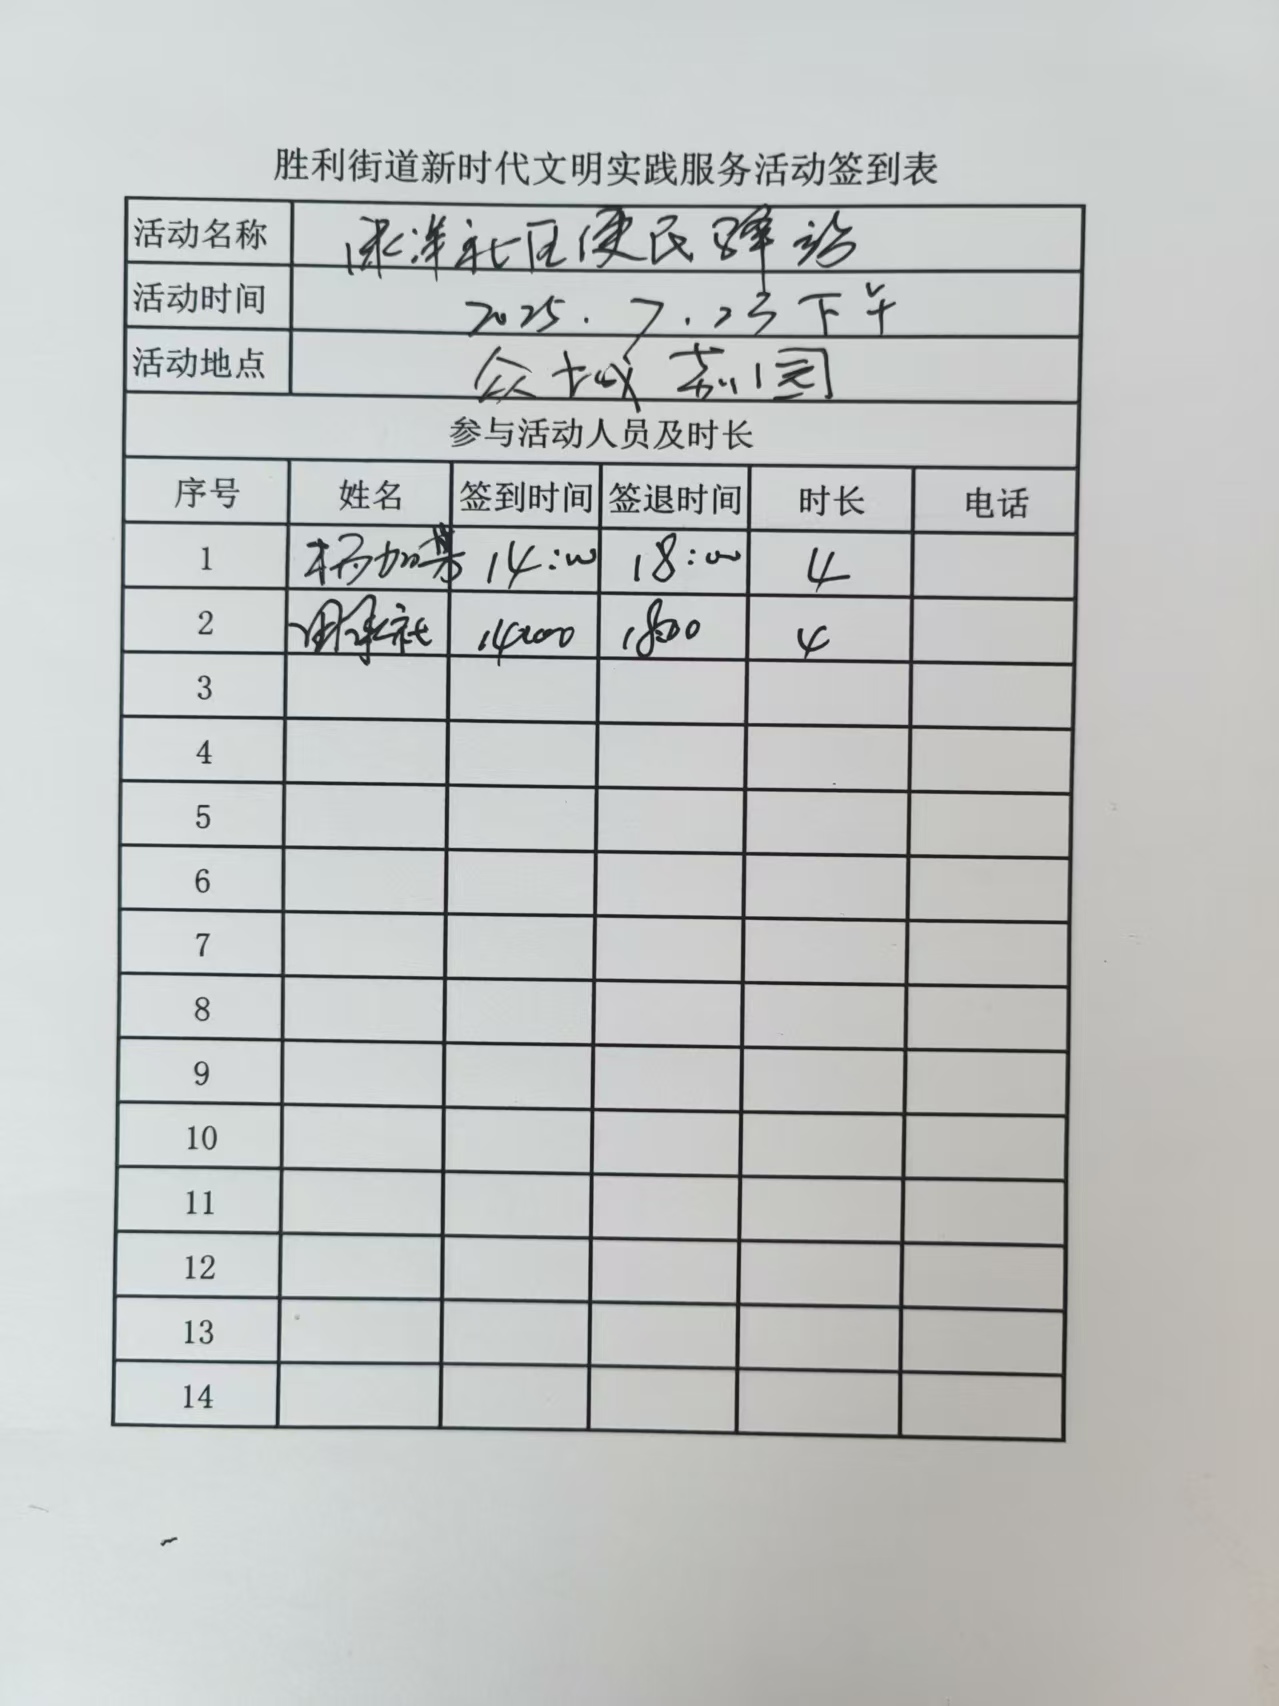 胜利街道新时代文明实践服务活动签到表
活动名称 社区便民驿站
活动时间 2025.7.23下午
活动地点 众城 园
参与活动人员及时长
序号 姓名 签到时间 签退时间 时长 电话
1 杨加 14:00 18:00 4
2 14:00 18:00 4
3
4
5
6
7
8
9
10
11
12
13
14